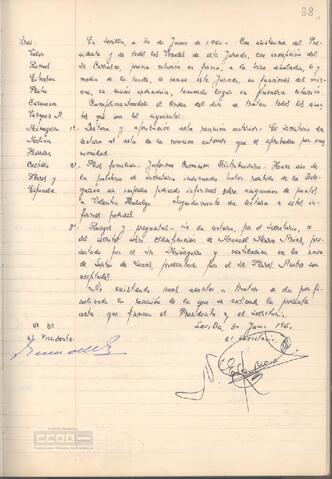 38
Sres:
Valor
Ramos
Esteban
Plata
Carmona
Vazquez P.
Molina
Castilla
Flores y
Espinola
En Sevilla, a 20 de Junio de 1960. Con asistencia del Presidente
y de todos los Vocales de este Jurado, con excepción del
Sr. Carrasco, previa citación en forma, a la hora señalada, 6 y
media de la tarde, se reune este Jurado, en funciones del mismo,
en sesión ordinaria, teniendo lugar en primera citación
Cumplimentandose el Orden del dia se tratan todos los asuntos
que son los siguientes:
1º Lectura y aprobación acta reunión anterior. El Secretario da
lectura al acta de la reunión anterior que es aprobada por unanimidad.
2º Plus familiar. Informe Comisión Distribuidora. Hace uso de
la palabra el Secretario indicando haber recibido de la Delegación
un informe pedido informes sobre asignación de puntos,
a Valentin Hidalgo. Seguidamente da lectura a este informe
pedido.
3º Ruegos y preguntas. da lectura, por el Secretario, a
los escritos sobre clasificación de Manuel
presentado por el Sr. y ventilación en la nave
de presentado por el Sr. Flores. Ambos son
aceptados.
No existiendo mas asuntos a tratar se da por
finalizada la reunión de la que se extiende la presente
acta que firman el Presidente y el Secretario.
Sevilla, 20 Junio 1960
Vº Bº
El Presidente
El Secretario
CCOO